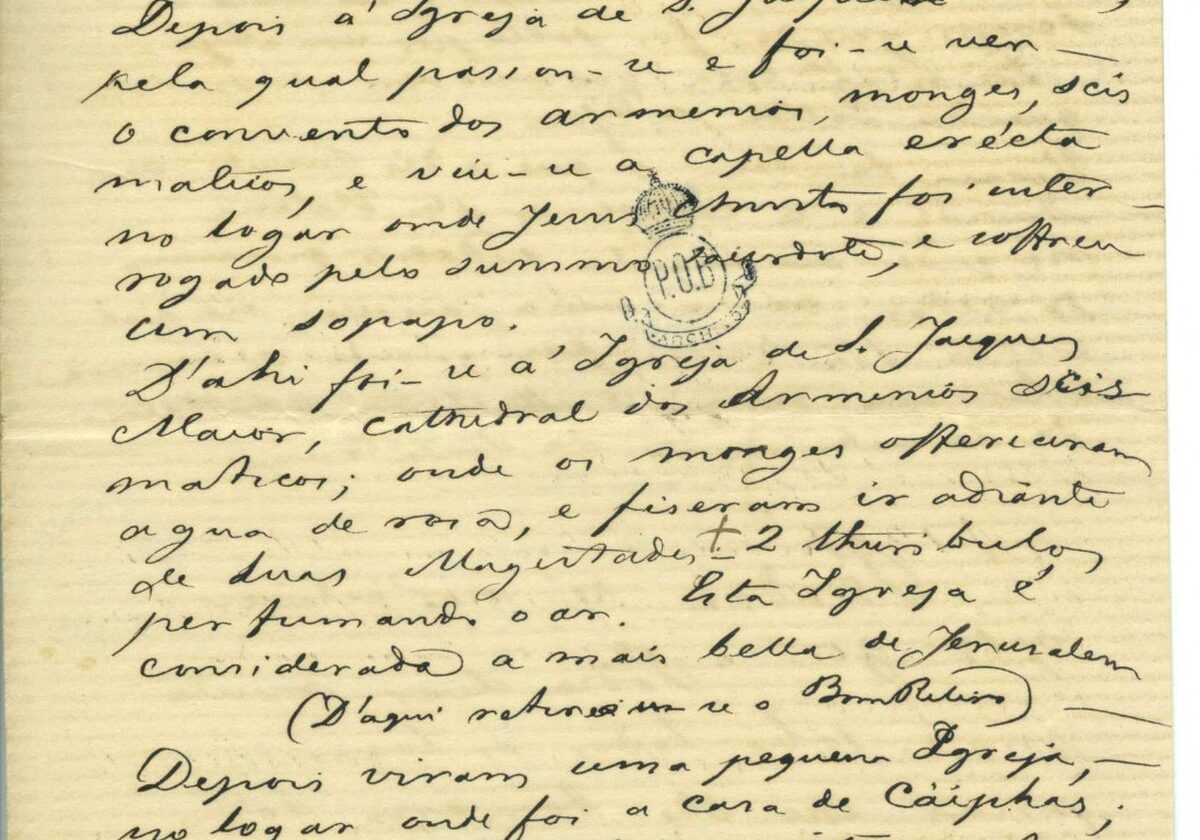 Depois á Igreja de S.
pela qual passou-se e foi-se ver —
o convento dos armenios, monges, scis
maticos, e viu-se a capella erécta
no logár onde Jesus Christo foi inter —
rogado pelo summo sacerdote, e soffreu
um sopapo.
D'ahi foi-se á Igreja de S. Jacques
Maiór, cathedral dos Armenios scis
maticos; onde os monges offereceram
agua de rosa, e fiseram ir adiante
de suas Magestades + — 2 thuribulos
perfumando o ar. Esta Igreja é
considerada a mais bella de Jerusalem
(D'aqui retirou-se o Bom Retiro) —
Depois viram uma pequena Igreja, —
no logar onde foi a casa de Cáiphás;
P.O.B
ARCH